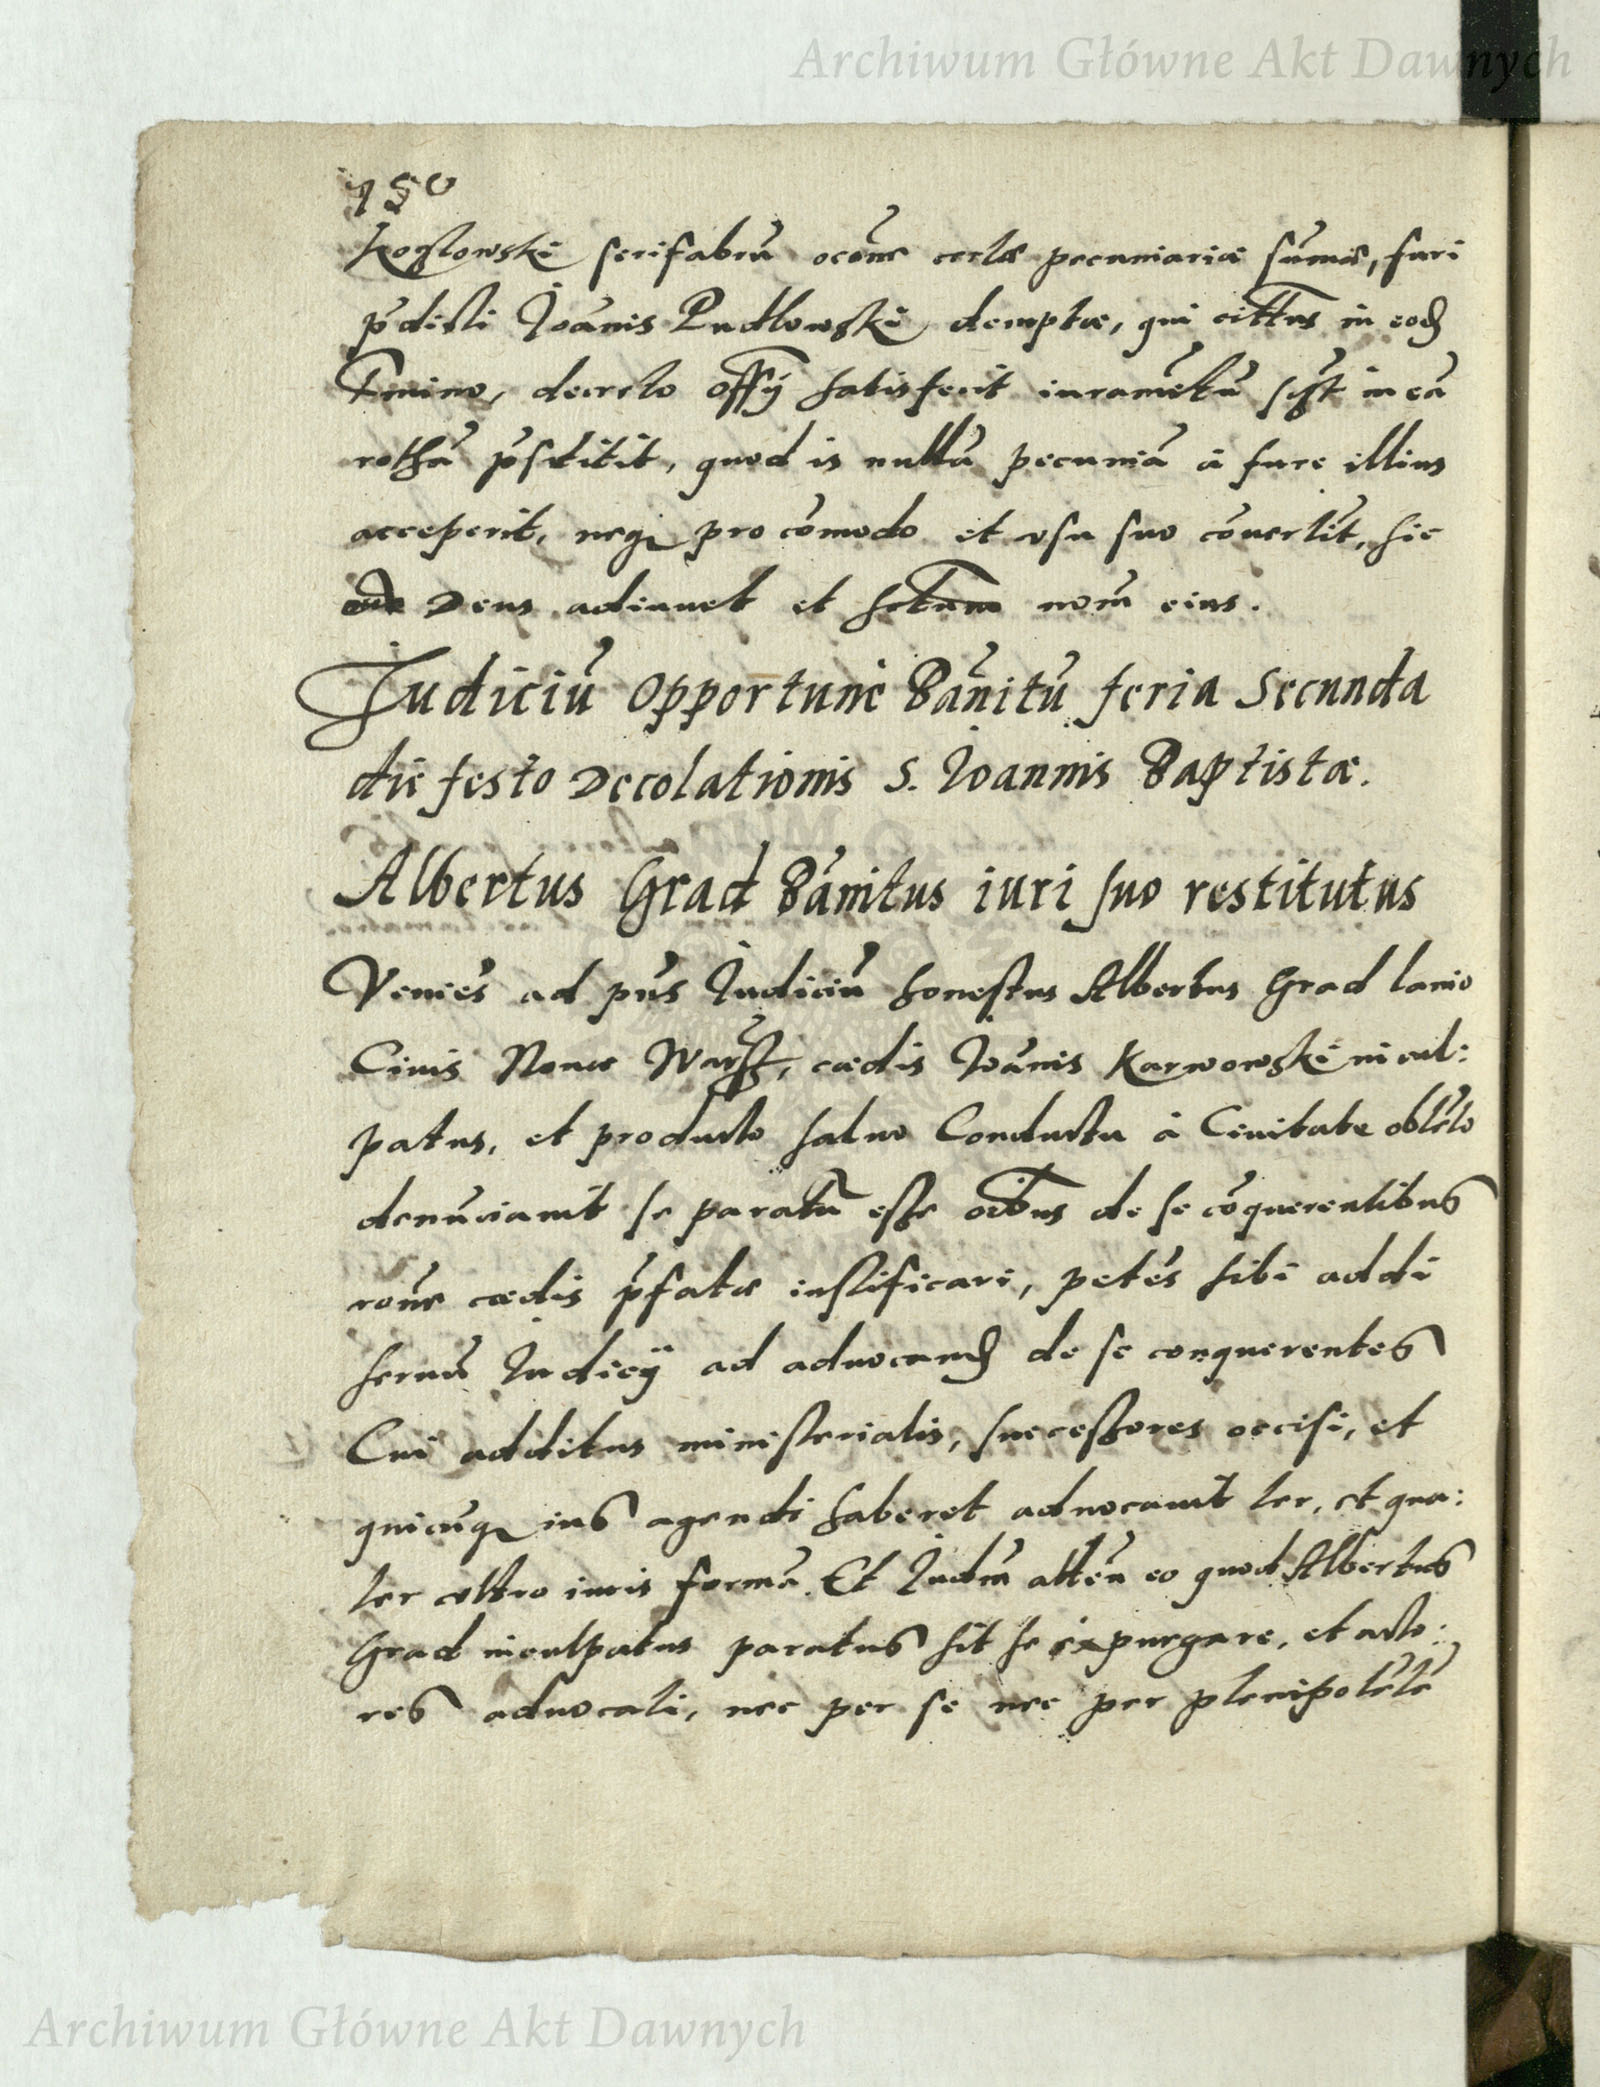 Archiwum Główne Akt Dawnych
150
Kozlowski serifabrũ occõne certæ pecuniariæ sũmæ, furi
p̃dicti Joãnis Pudlowski demptæ, qui cittus in eod
Tmino, decreto offÿ satisfecit iuramẽtũ in eã
rothã p̃stitit, quod is nullã pecuniã à fure illius
acceperit, neq pro cõmodo et usu suo cõuertit, sic
Deus adiuuet et nom̃ eius.
Judiciũ Opportunè Bãnitũ feria Secunda
die festo Decolationis S. Joannis Baptistæ.
Albertus Grad Bãnitus iuri suo restitutus
Veniẽs ad pñs Judiciũ honestus Albertus Grad lanio
Ciuis Nouæ Warß, cædis Joãnis Karwowski incul:
patus, et producto saluo Conductu à Ciuitate obtẽto
denũciauit se paratũ esse oĩbus de se cõquerentibus
rõne cædis p̃fatæ iustificari, petẽs sibi addi
seruũ Judicÿ ad aduocand de se conquerentes
Cui additus ministerialis, successores occisi, et
quicũq ius agendi haberet aduocauit ter, et qua:
ter ultro iuris formã. Et Judm̃ attẽn eo quod Albertus
Grad inculpatus paratus sit se expurgare, et acto:
res aduocati, nec per se nec per plenipotẽtẽ
Archiwum Główne Akt Dawnych